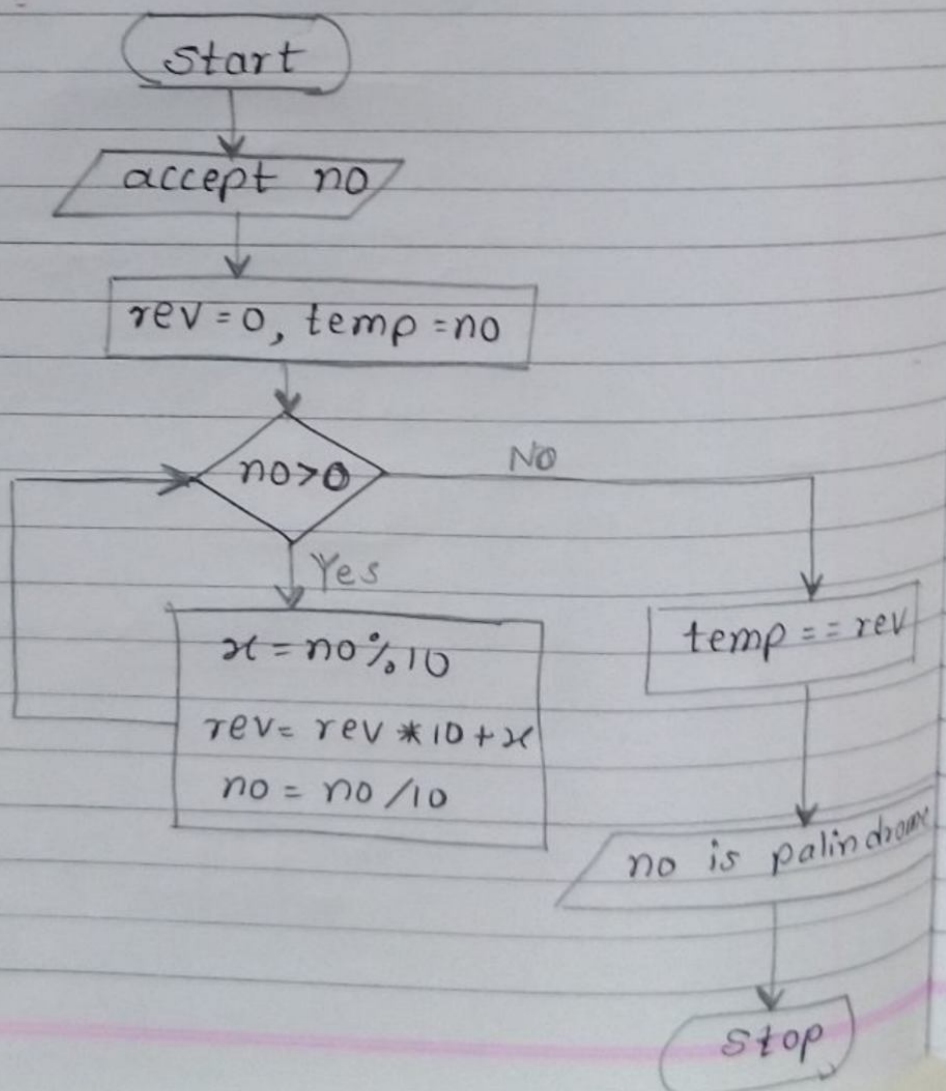 Start
accept no
rev = 0, temp = no
no>0
No
Yes
x = no % 10
rev = rev * 10 + x
no = no / 10
temp == rev
no is palindrome
stop